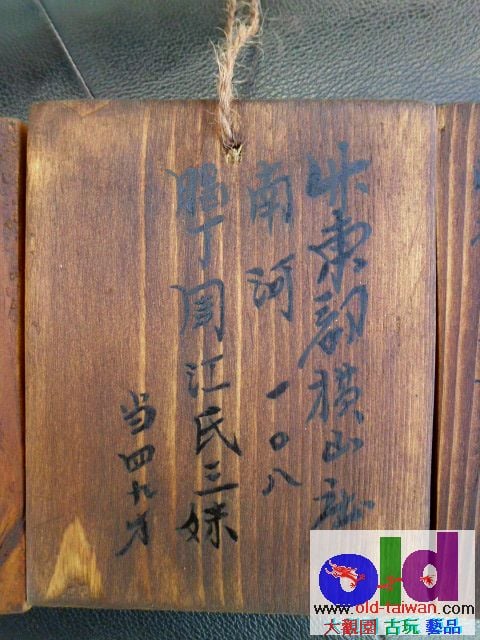 竹東郡横山庄
南河 一〇八
丁周江氏三妹
当四九才
old
www.old-taiwan.com
大觀園 古玩 藝品